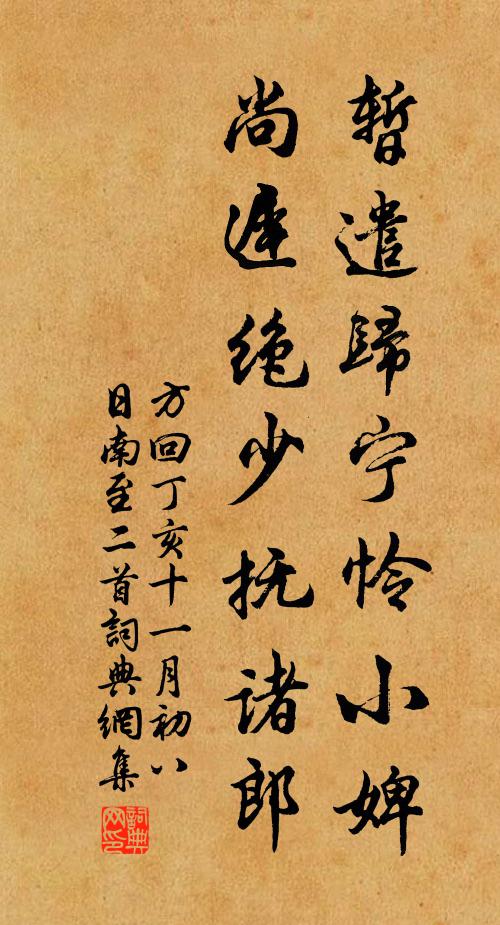 暫遣歸宁怜小婢
尚遲绝少抚诸郎
方回丁亥十一月初八
日南至二首詞典網集
詞典
网印